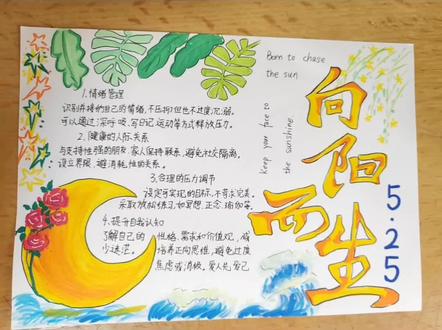 Born to chase
the sun
keep your face to
the sunshine
向阳而生
5·25
1.情绪管理
识别并接纳自己的情绪,不压抑但也不过度沉溺。
可以通过深呼吸、写日记、运动等方式释放压力。
2.健康的人际关系
与支持性强的朋友、家人保持联系,避免社交隔离,
设立界限,避消耗性的关系。
3.合理的压力调节
设定可实现的目标,不苛求完美。
采取放松练习,如冥想、正念、瑜伽等。
4.提升自我认知
了解自己的性格、需求和价值观,减
少迷茫。培养正向思维,避免过度
焦虑或消极。爱人先爱己